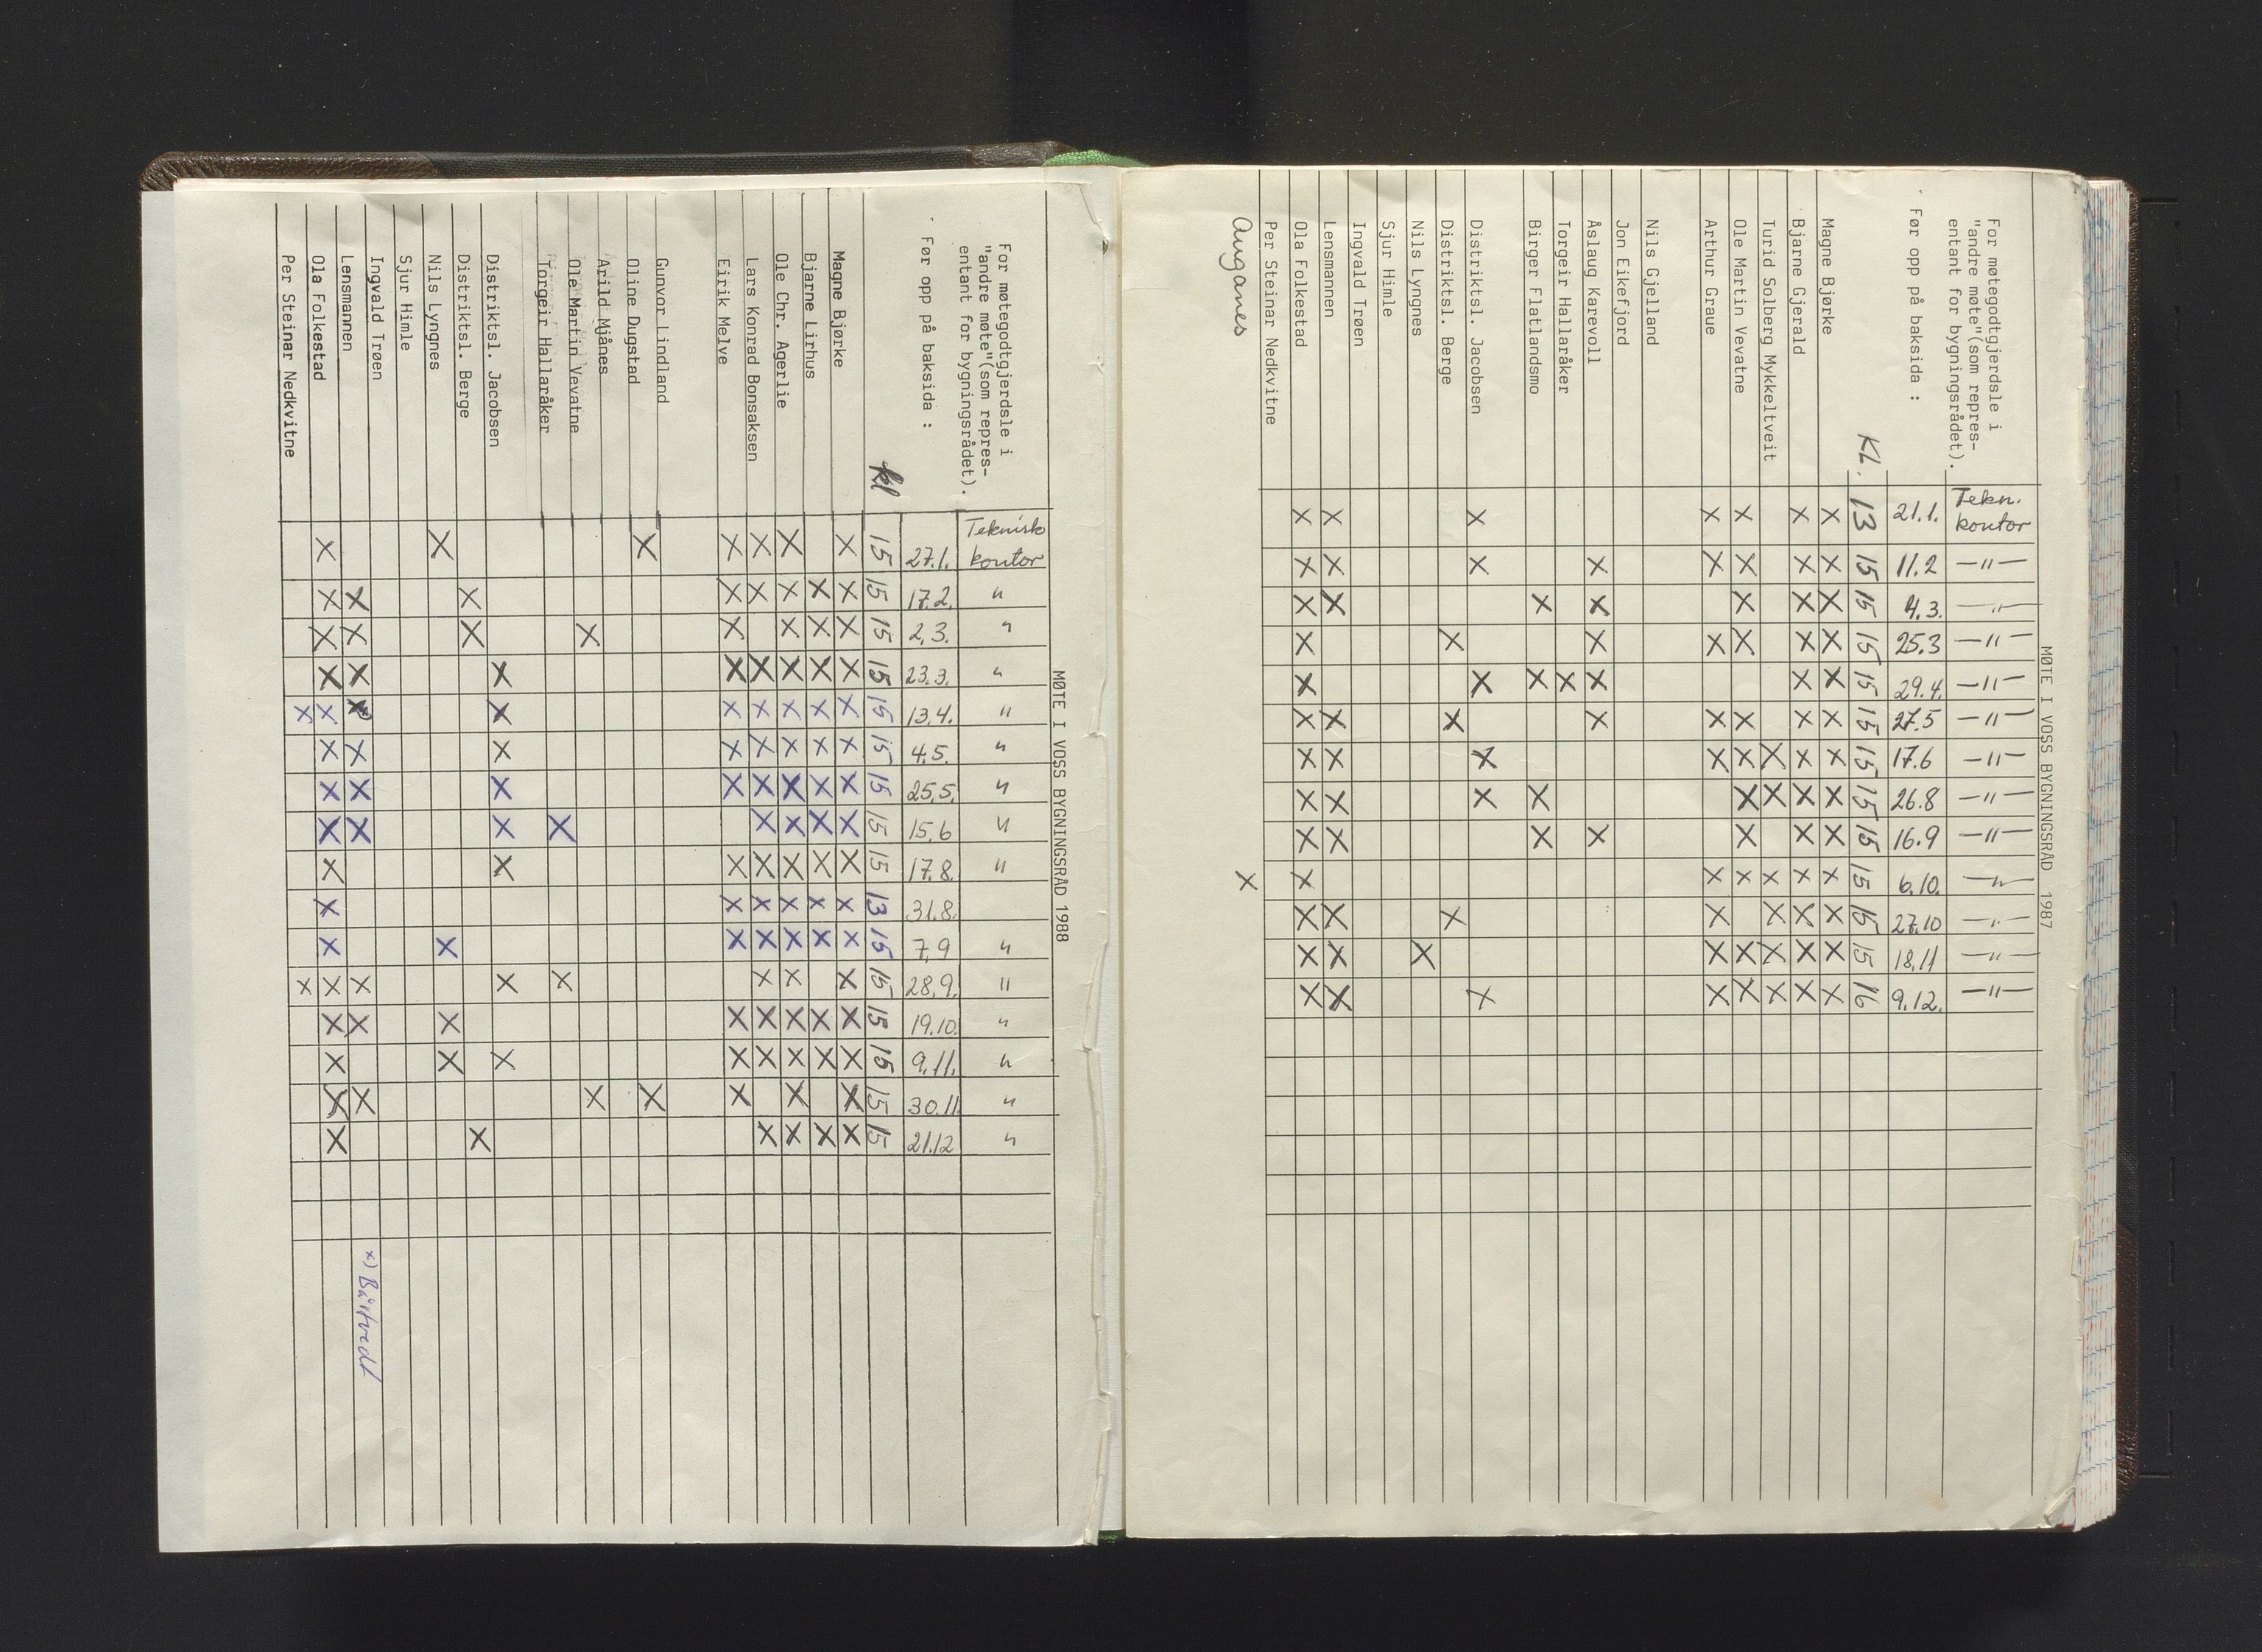 MØTE I VOSS BYGNINGSRÅD 1988
For møtegodtgjerdsle i
"andre møte"(som repres-
entant for bygningsrådet).
Teknisk kontor " " " " " " " " " " " " " "
Før opp på baksida : 27.1. 17.2. 2.3. 23.3. 13.4. 4.5. 25.5. 15.6 17.8. 31.8. 7.9 28.9. 19.10. 9.11. 30.11. 21.12
kl 15 15 15 15 15 15 15 15 15 13 15 15 15 15 15 15
Magne Bjørke X X X X X X X X X X X X X X X X
Bjarne Lirhus X X X X X X X X X X X X X
Ole Chr. Agerlie X X X X X X X X X X X X X X X X
Lars Konrad Bonsaksen X X X X X X X X X X X X X X
Eirik Melve X X X X X X X X X X X X X
Gunvor Lindland X X
Oline Dugstad
Arild Mjånes X X
Ole Martin Vevatne
Torgeir Hallaråker X X
Distriktsl. Jacobsen X X X X X X X X
Distriktsl. Berge X X X
Nils Lyngnes X X X X
Sjur Himle
Ingvald Trøen
Lensmannen X X X X X X X X X X
Ola Folkestad X X X X X X X X X X X X X X X X
Per Steinar Nedkvitne X X
x) Båstvedt
MØTE I VOSS BYGNINGSRÅD 1987
For møtegodtgjerdsle i
"andre møte"(som repres-
entant for bygningsrådet).
Tekn. kontor —"— —"— —"— —"— —"— —"— —"— —"— —"— —"— —"— —"—
Før opp på baksida : 21.1. 11.2 4.3. 25.3 29.4. 27.5 17.6 26.8 16.9 6.10. 27.10 18.11 9.12.
KL. 13 15 15 15 15 15 15 15 15 15 15 15 16
Magne Bjørke X X X X X X X X X X X X X
Bjarne Gjerald X X X X X X X X X X X X X
Turid Solberg Mykkeltveit X X X X X X
Ole Martin Vevatne X X X X X X X X X X X
Arthur Graue X X X X X X X X X
Nils Gjelland
Jon Eikefjord
Åslaug Karevoll X X X X X X
Torgeir Hallaråker X
Birger Flatlandsmo X X X X
Distriktsl. Jacobsen X X X X X X
Distriktsl. Berge X X X
Nils Lyngnes X
Sjur Himle
Ingvald Trøen
Lensmannen X X X X X X X X X X
Ola Folkestad X X X X X X X X X X X X X
Per Steinar Nedkvitne
Anganes X